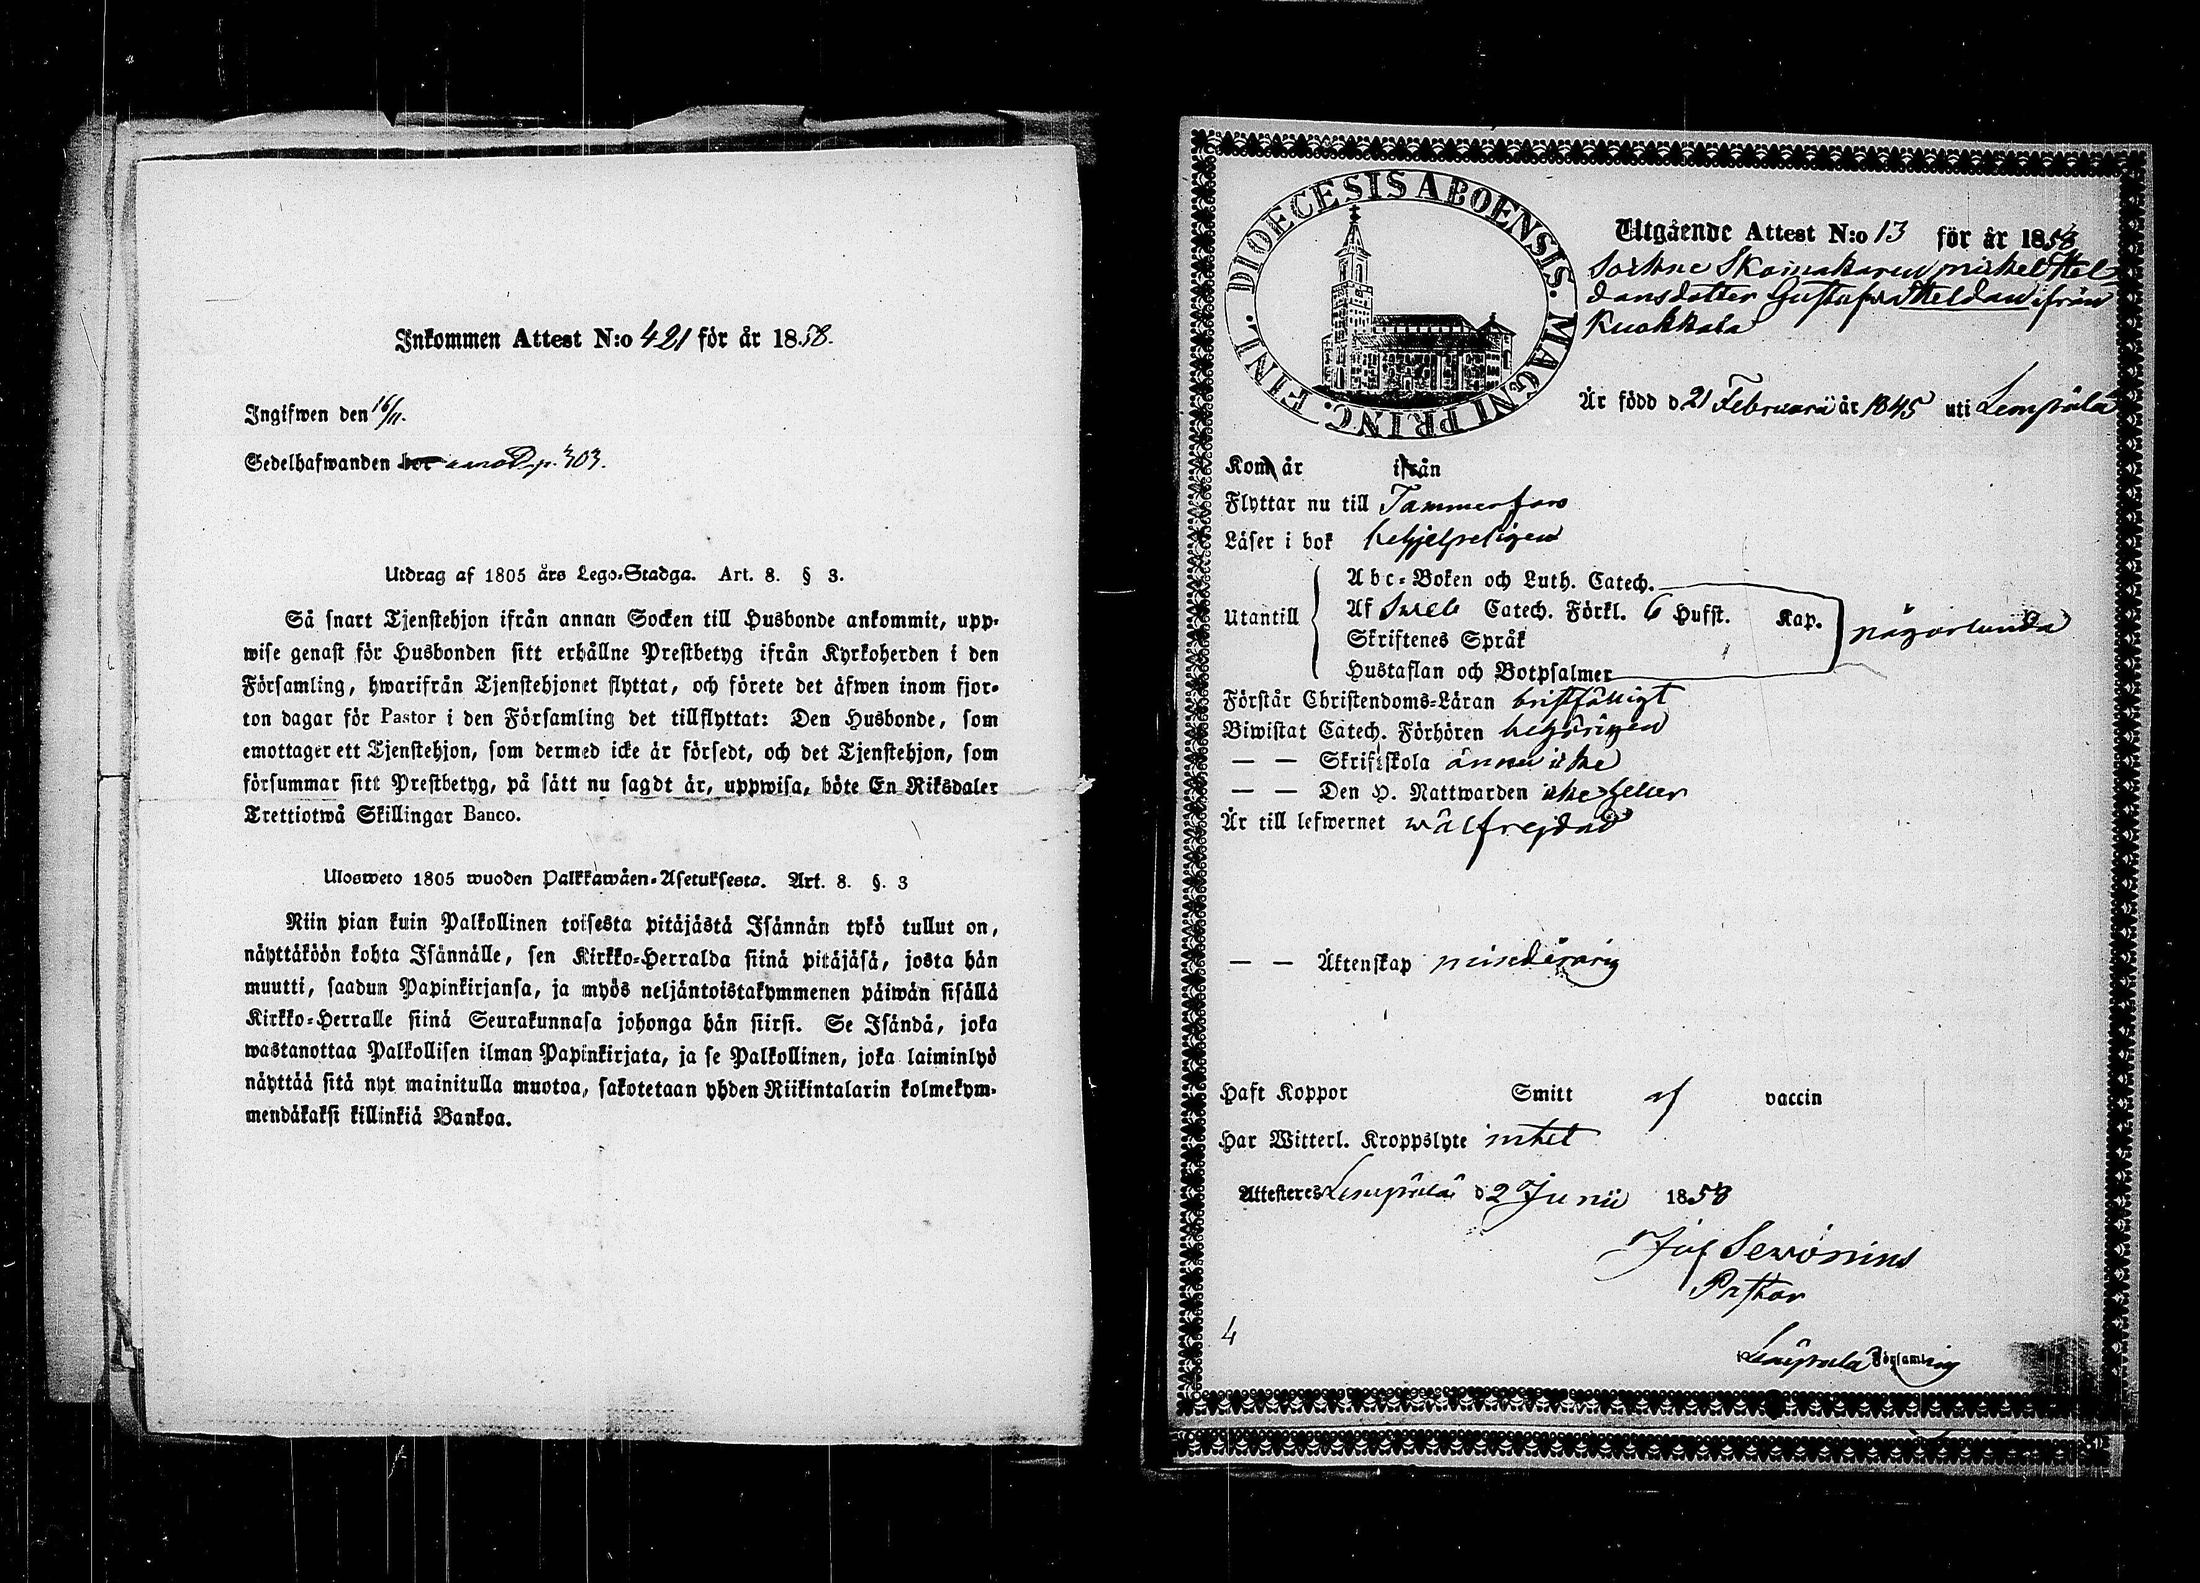 Inkommen Attest N:o 421 för år 1858.
Ingifwen den 16/11.
Sedelhafwanden bor p. 303.
Utdrag af 1805 års Lego-Stadga. Art. 8. § 3.
Så snart Tjenstehjon ifrån annan Socken till Husbonde ankommit, upp-
wise genast för Husbonden sitt erhållne Prestbetyg ifrån Kyrkoherden i den
Församling, hwarifrån Tjenstehjonet flyttat, och förete det äfwen inom fjor-
ton dagar för Pastor i den Församling det tillflyttat: Den Husbonde, som
emottager ett Tjenstehjon, som dermed icke är försedt, och det Tjenstehjon, som
försummar sitt Prestbetyg, på sätt nu sagdt är, uppwisa, böte En Riksdaler
Trettiotwå Skillingar Banco.
Ulosweto 1805 wuoden Palkkawäen-Asetuksesta. Art. 8. §. 3
Niin pian kuin Palkollinen toisesta pitäjästä Isännän tykö tullut on,
näyttäköön kohta Isännälle, sen Kirkko-Herralda siinä pitäjäsä, josta hän
muutti, saadun Papinkirjansa, ja myös neljäntoistakymmenen päiwän sisällä
Kirkko-Herralle siinä Seurakunnasa johonga hän siirsi. Se Isändä, joka
wastanottaa Palkollisen ilman Papinkirjata, ja se Palkollinen, joka laiminlyö
näyttää sitä nyt mainitulla muotoa, sakotetaan yhden Riikintalarin kolmekym-
mendäkaksi killinkiä Bankoa.
DIOECESIS ABOENSIS. MAGNI PRINC. FINL.
Utgående Attest N:o 13 för år 1858
Sockne Skomakaren Mickel Hel-
dansdotter Gustafva Heldan ifrån
Kuokkala
Är född d 21 Februarii år 1845 uti Lempäälä
Kom år ifrån
Flyttar nu till Tammerfors
Läser i bok behjelpeligen
Utantill
Abc-Boken och Luth. Catech.
Af Sveb Catech. Förkl. 6 Hufst. Kap.
Skriftenes Språk
Hustaflan och Botpsalmer
någorlunda
Förstår Christendoms-Läran bristfälligt
Biwistat Catech. Förhören behörigen
— — Skriftskola ännu icke
— — Den H. Nattwarden icke heller
Är till lefwernet wälfrejdad
— — Äktenskap minderårig
Haft Koppor Smitt af vaccin
Har Witterl. Kroppslyte intet
Attesteres Lempäälä d 2 Junii 1858
Jos Sewonius
Pastor
i Lempäälä Församling
4